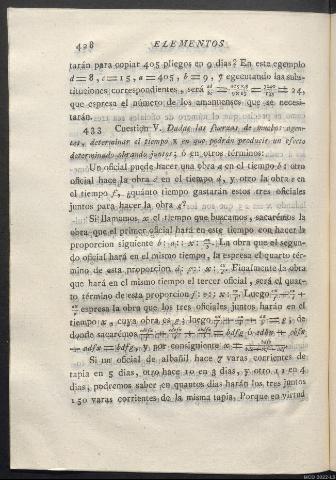 428 ELEMENTOS
tarán para copiar 405 pliegos en 9 dias? En este egemplo
d=8, c=15, a=405, b=9, y egecutando las subs-
tituciones correspondientes, será = 24,
que espresa el número de los amanuenses que se necesi-
tarán.
433 Cuestion V. Dadas las fuerzas de muchos agen-
tes, determinar el tiempo x en que podrán producir un efecto
determinado obrando juntos; ó en otros términos:
Un oficial puede hacer una obra a en el tiempo b: otro
oficial hace la obra c en el tiempo d, y otro la obra e en
el tiempo f, ¿quánto tiempo gastarán estos tres oficiales
juntos para hacer la obra g?
Si llamamos x el tiempo que buscamos, sacarémos la
obra que el primer oficial hará en este tiempo con hacer la
proporcion siguiente b: a:: x: La obra que el segun-
do oficial hará en el mismo tiempo, la espresa el quarto tér-
mino de esta proporcion d: c:: x: Finalmente la obra
que hará en el mismo tiempo el tercer oficial, será el quar-
to término de esta proporcion f: e:: x: Luego
espresa la obra que los tres oficiales juntos harán en el
tiempo x, cuya obra es g; luego = g; de
donde sacarémos
= bdfg, y por consiguiente x =
Si un oficial de albañil hace 7 varas corrientes de
tapia en 5 dias, otro hace 10 en 3 dias, y otro 11 en 4
dias, podremos saber en quantos dias harán los tres juntos
150 varas corrientes de la misma tapia. Porque en virtud